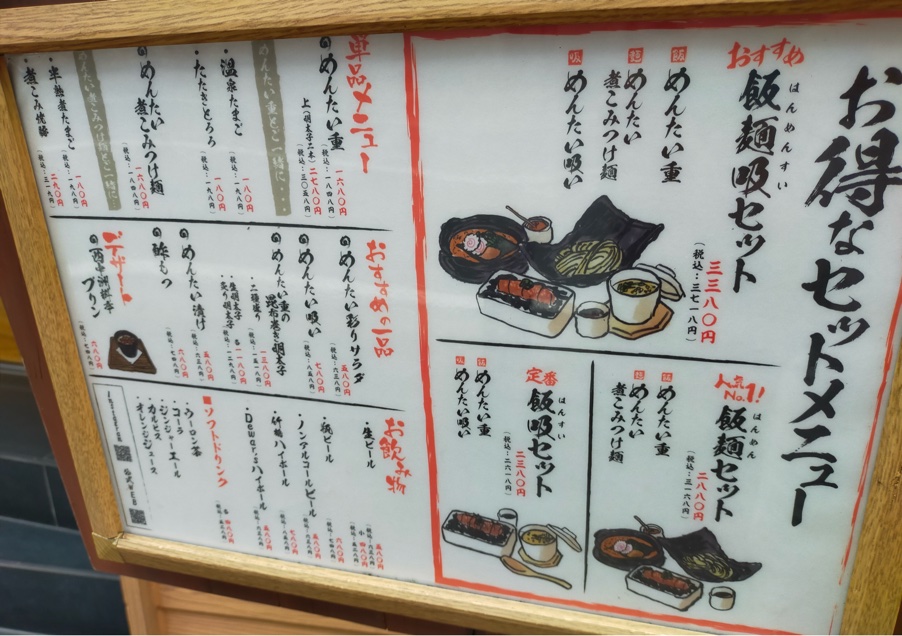 お得なセットメニュー
おすすめ
飯麺吸セット
はんめんすい
三三八〇円
(税込:三七一八円)
飯 めんたい重
麺 めんたい
煮こみつけ麺
吸 めんたい吸い
人気
No.1!
飯麺セット
はんめん
二八八〇円
(税込:三一六八円)
飯 めんたい重
麺 めんたい
煮こみつけ麺
定番
飯吸セット
はんすい
二三八〇円
(税込:二六一八円)
飯 めんたい重
吸 めんたい吸い
単品メニュー
めんたい重
一六八〇円
(税込:一八四八円)
上(明太子二本)
二七八〇円
(税込:三〇五八円)
めんたい重とご一緒に・・・
・温泉たまご
一八〇円
(税込:一九八円)
・たたきとろろ
一八〇円
(税込:一九八円)
めんたい煮こみつけ麺
一六八〇円
(税込:一八四八円)
めんたい煮こみつけ麺とご一緒に
・半熟煮たまご
一八〇円
(税込:一九八円)
・煮こみ焼豚
二九〇円
(税込:三一九円)
おすすめの一品
めんたい彩りサラダ
五八〇円
(税込:六三八円)
めんたい吸い
七八〇円
(税込:八五八円)
めんたい重の
昆布巻き明太子
・二種盛り
一三八〇円
・生明太子
・炙り明太子
各一一八〇円
めんたい漬け
五八〇円
(税込:六三八円)
酢もつ
六八〇円
(税込:七四八円)
デザート
西中洲椒房
プリン
六八〇円
(税込:七四八円)
お飲み物
・生ビール
・瓶ビール
・ノンアルコールビール
・竹鶴ハイボール
・Dewar'sハイボール
■ソフトドリンク
・ウーロン茶
・コーラ
・ジンジャーエール
・カルピス
・オレンジジュース
各四八〇円
公式WEB